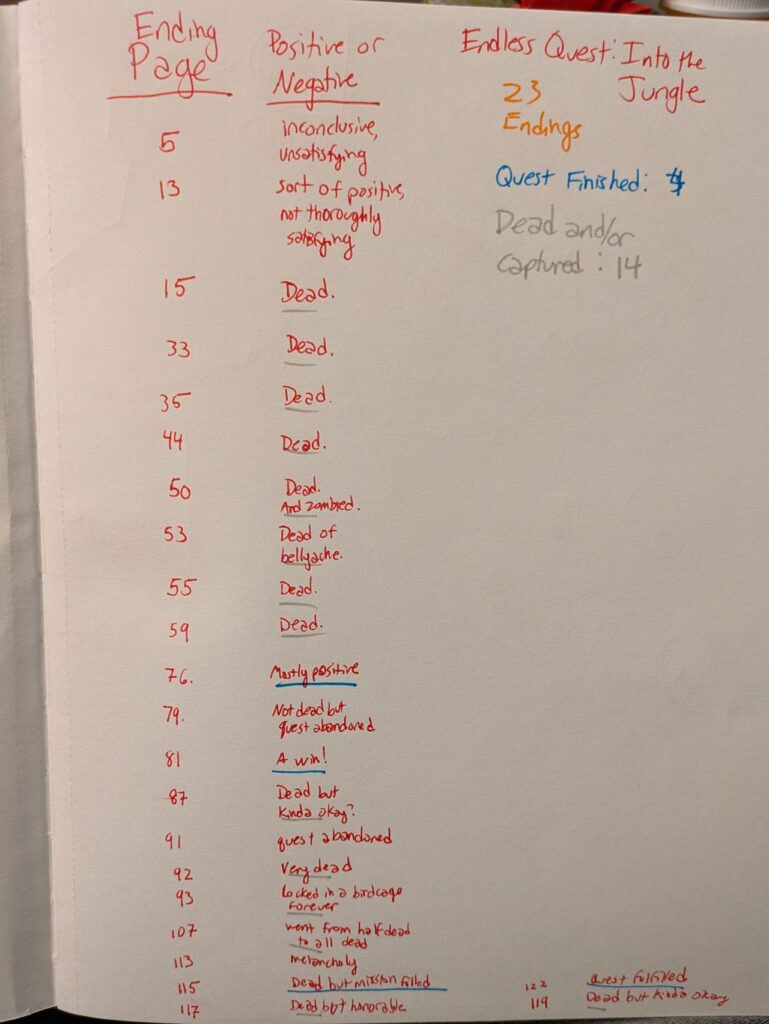 Ending
Page
Positive or
Negative
Endless Quest: Into the
Jungle
23
Endings
Quest Finished: 4
Dead and/or
Captured: 14
5
inconclusive,
unsatisfying
13
sort of positive,
not thoroughly
satisfying
15 Dead.
33 Dead.
35 Dead.
44 Dead.
50 Dead.
And zombied.
53 Dead of
bellyache.
55 Dead.
59 Dead.
76. Mostly positive
79. Not dead but
quest abandoned
81 A win!
87 Dead but
kinda okay?
91 quest abandoned
92 Very dead
93 Locked in a birdcage
forever
107 went from half dead
to all dead
113 melancholy
115 Dead but mission filled
117 Dead but honorable
122 Quest fulfilled
119 Dead but kinda okay